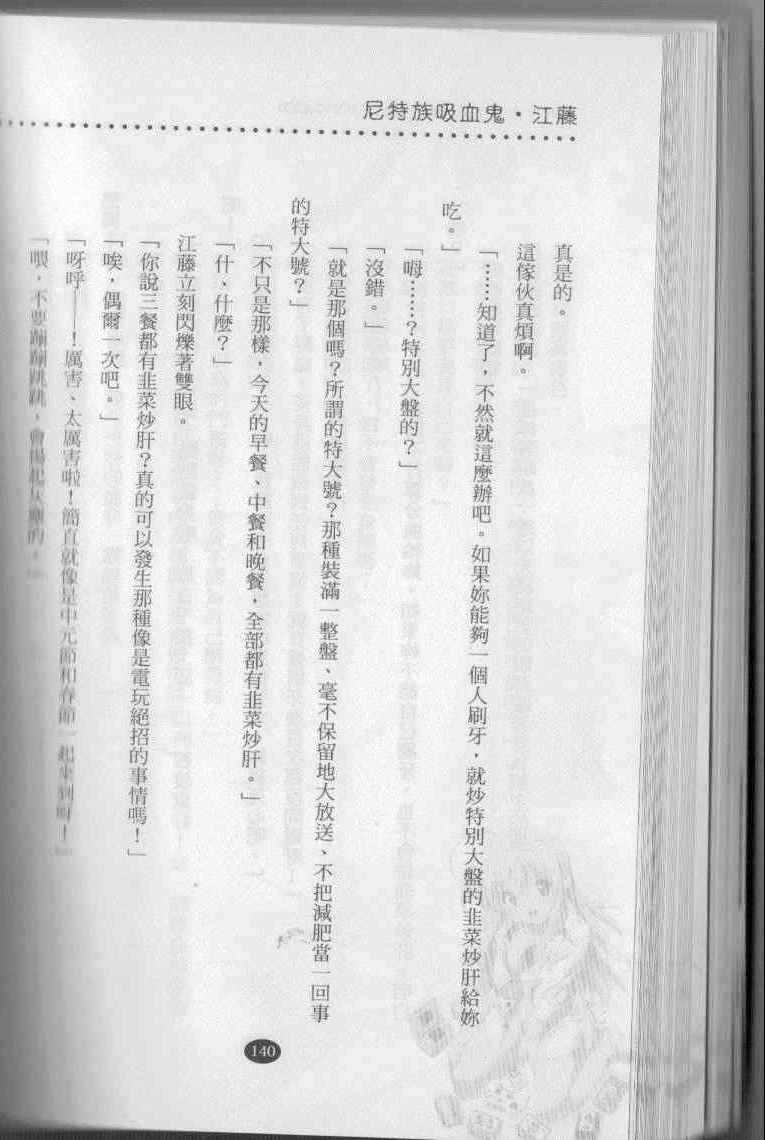 尼特族吸血鬼・江藤
真是的。
這傢伙真煩啊。
「……知道了，不然就這麼辦吧。如果妳能夠一個人刷牙，就炒特別大盤的韭菜炒肝給妳
吃。」
「嗚……？特別大盤的？」
「沒錯。」
「就是那個嗎？所謂的特大號？那種裝滿一整盤、毫不保留地大放送、不把減肥當一回事
的特大號？」
「不只是那樣，今天的早餐、中餐和晚餐，全部都有韭菜炒肝。」
「什、什麼？」
江藤立刻閃爍著雙眼。
「你說三餐都有韭菜炒肝？真的可以發生那種像是電玩絕招的事情嗎！」
「唉，偶爾一次吧。」
「呀呼——！厲害、太厲害啦！簡直就像是中元節和春節一起來到啊！」
「喂，不要蹦蹦跳跳，會揚起灰塵的。」
140